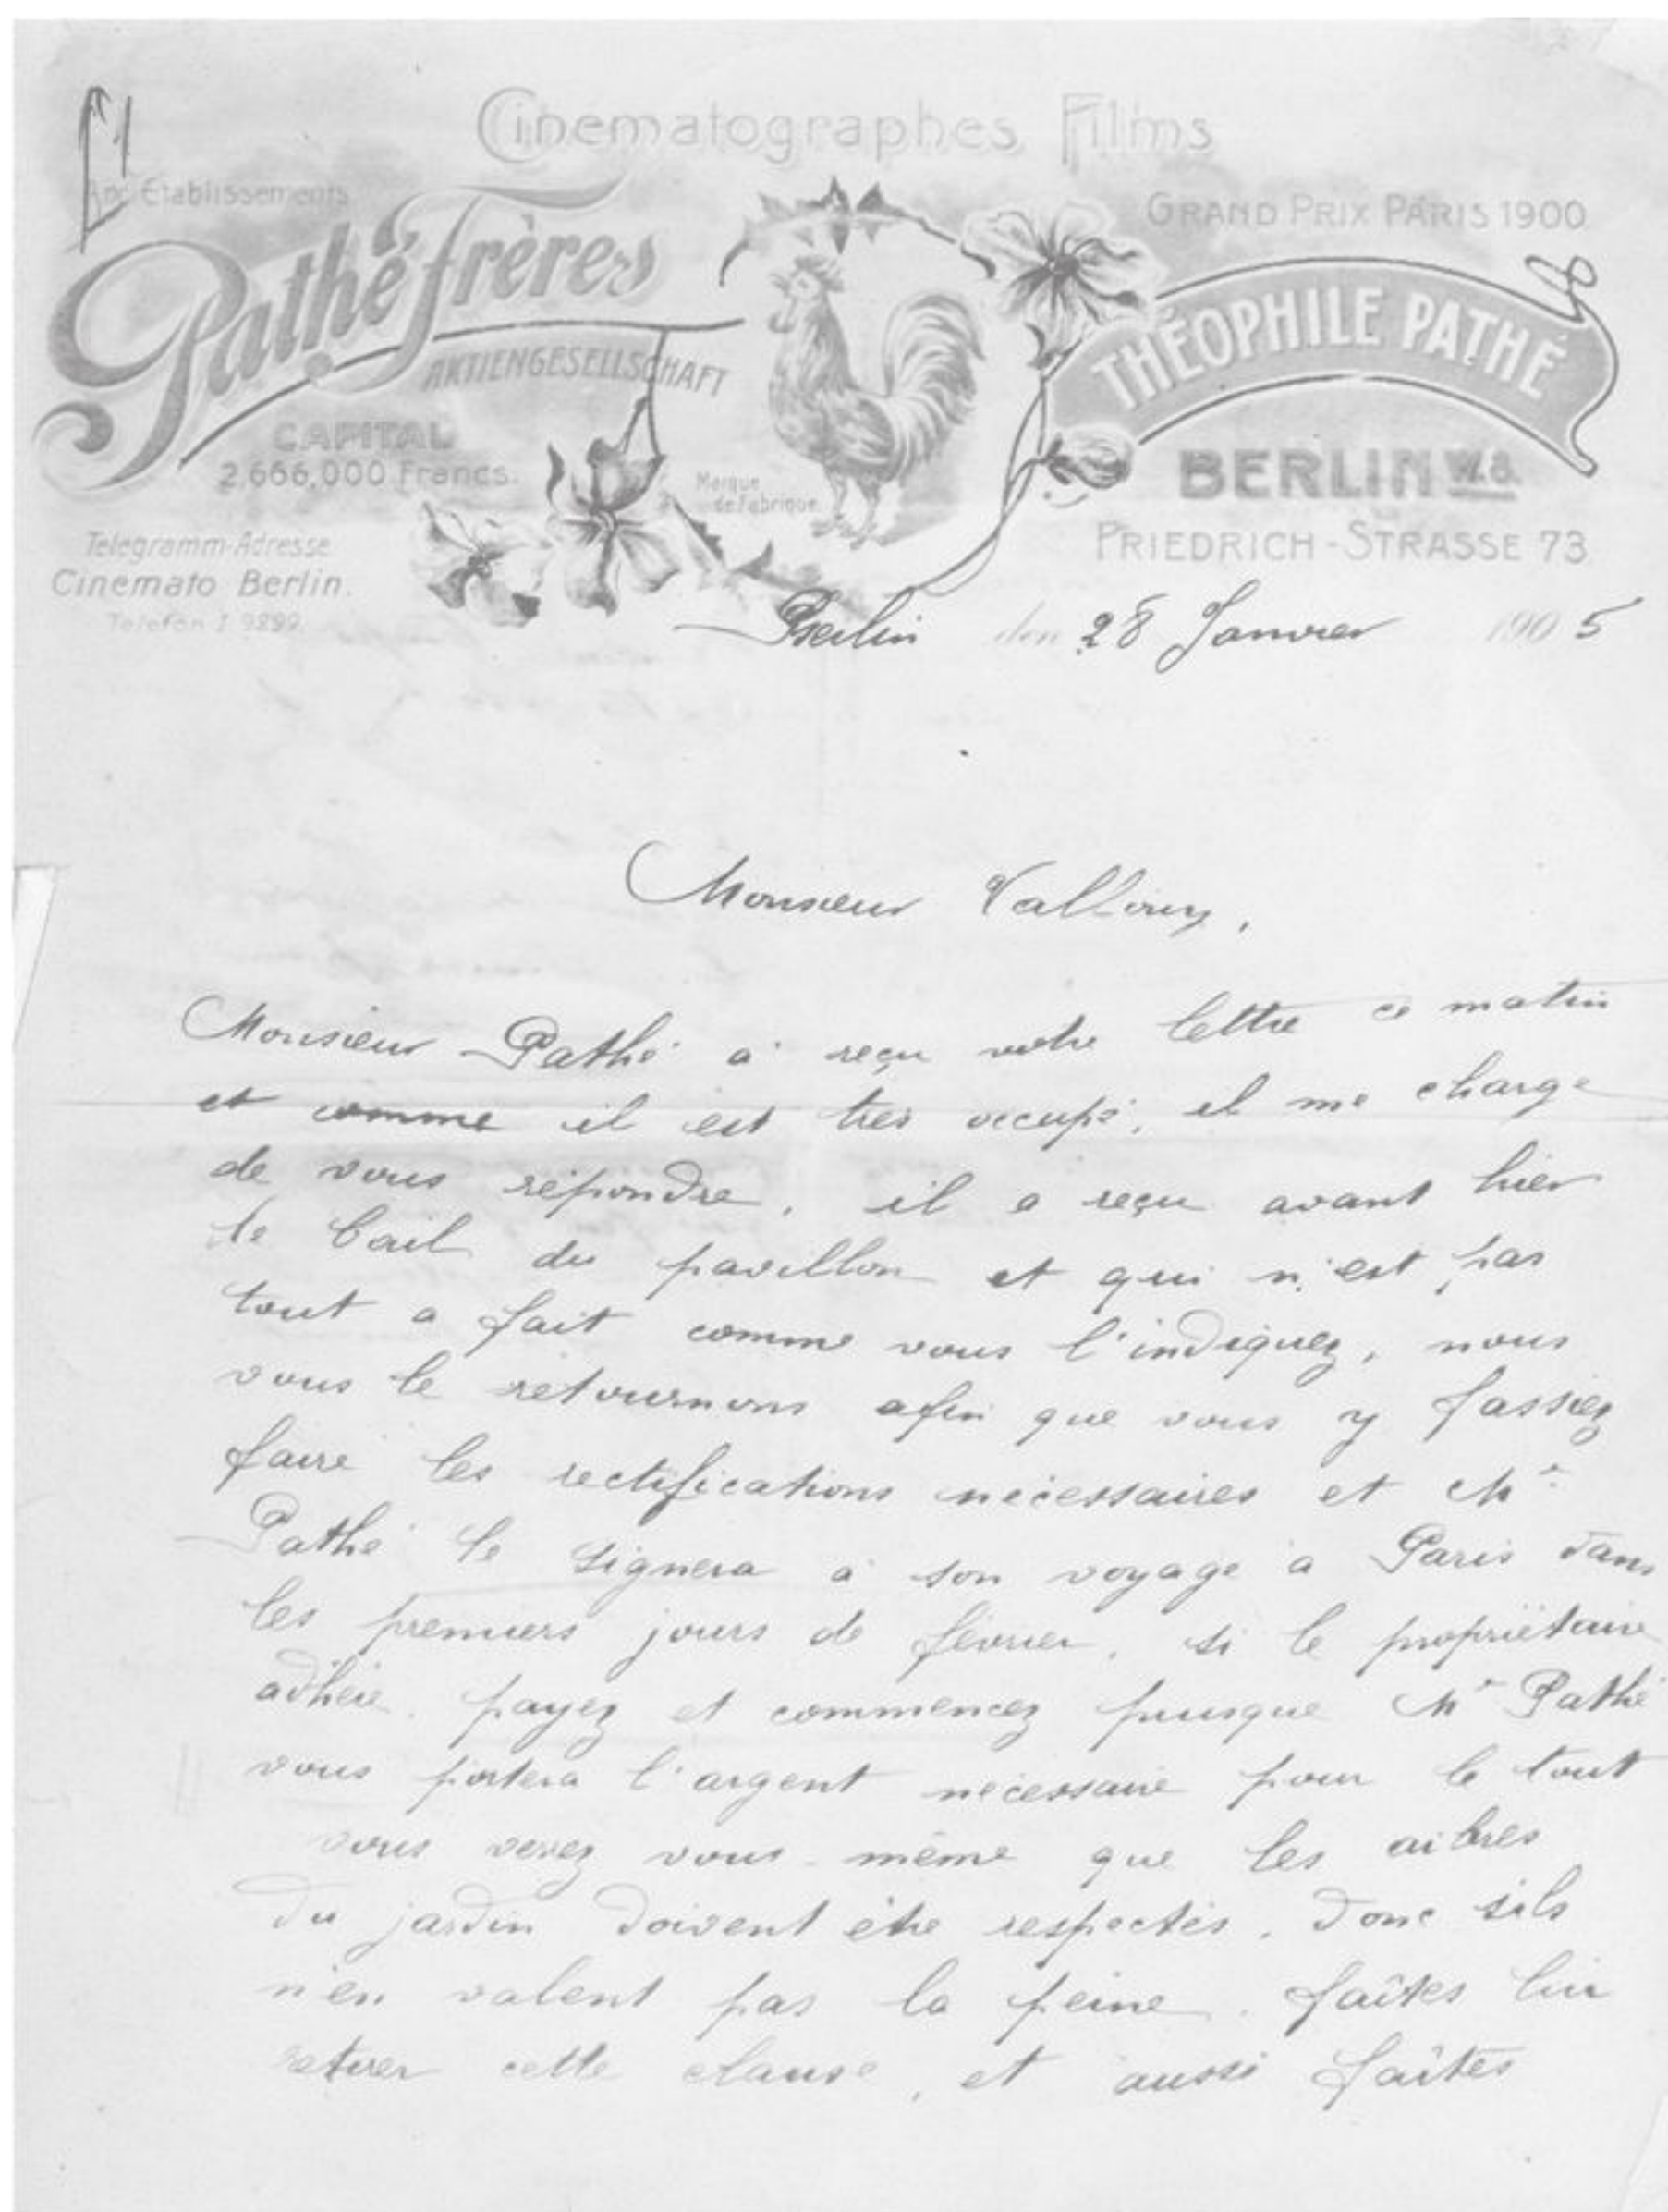 Cinematographes Films
Anc Etablissements
Pathé Frères
AKTIENGESELLSCHAFT
CAPITAL
2.666,000 Francs.
Telegramm-Adresse
Cinemato Berlin.
Telefon I 9899
Marque
de Fabrique
GRAND PRIX PARIS 1900
THÉOPHILE PATHÉ
BERLIN W.8.
FRIEDRICH-STRASSE 73
Berlin den 28 Janvier 1905
Monsieur
Monsieur Pathé a reçu votre lettre ce matin
et comme il est très occupé, il me charge
de vous répondre, il a reçu avant hier
le bail du pavillon et qui n'est pas
tout a fait comme vous l'indiquez, nous
vous le retournons afin que vous y fassiez
faire les rectifications nécessaires et Mr
Pathé le signera à son voyage à Paris dans
les premiers jours de février, si le propriétaire
adhère, payez et commencez puisque Mr Pathé
vous portera l'argent nécessaire pour le tout
vous verez vous-même que les arbres
du jardin doivent être respectés, donc sils
n'en valent pas la peine, faîtes lui
retirer cette clause, et aussi faîtes